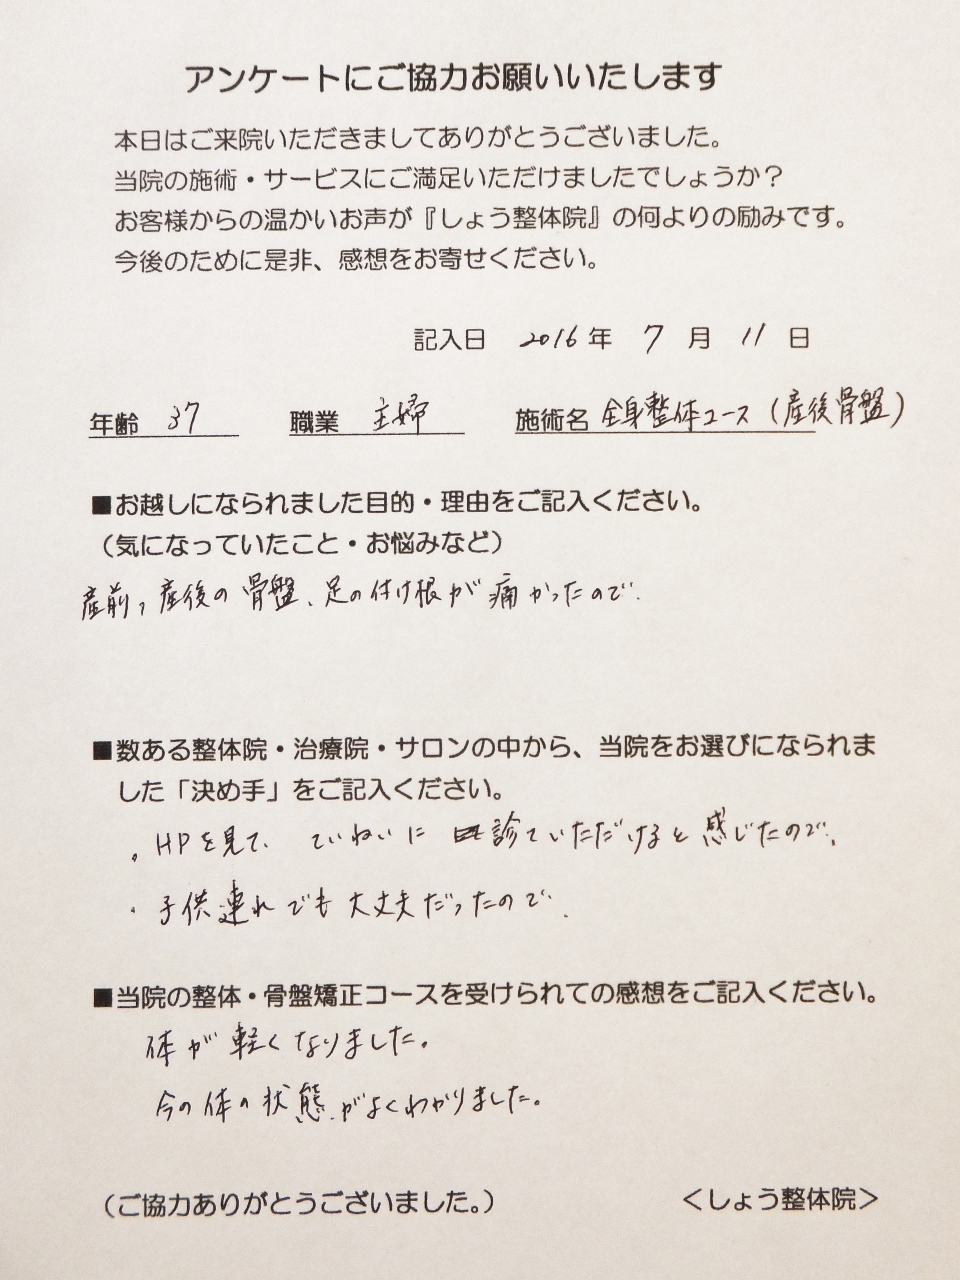 アンケートにご協力お願いいたします
本日はご来院いただきましてありがとうございました。
当院の施術・サービスにご満足いただけましたでしょうか？
お客様からの温かいお声が『しょう整体院』の何よりの励みです。
今後のために是非、感想をお寄せください。
記入日 2016年 7月 11日
年齢 37 職業 主婦 施術名 全身整体コース（産後骨盤）
■お越しになられました目的・理由をご記入ください。
（気になっていたこと・お悩みなど）
産前、産後の骨盤、足の付け根が痛かったので。
■数ある整体院・治療院・サロンの中から、当院をお選びになられま
した「決め手」をご記入ください。
・HPを見て、ていねいに診ていただけると感じたので。
・子供連れでも大丈夫だったので。
■当院の整体・骨盤矯正コースを受けられての感想をご記入ください。
体が軽くなりました。
今の体の状態がよくわかりました。
（ご協力ありがとうございました。） ＜しょう整体院＞